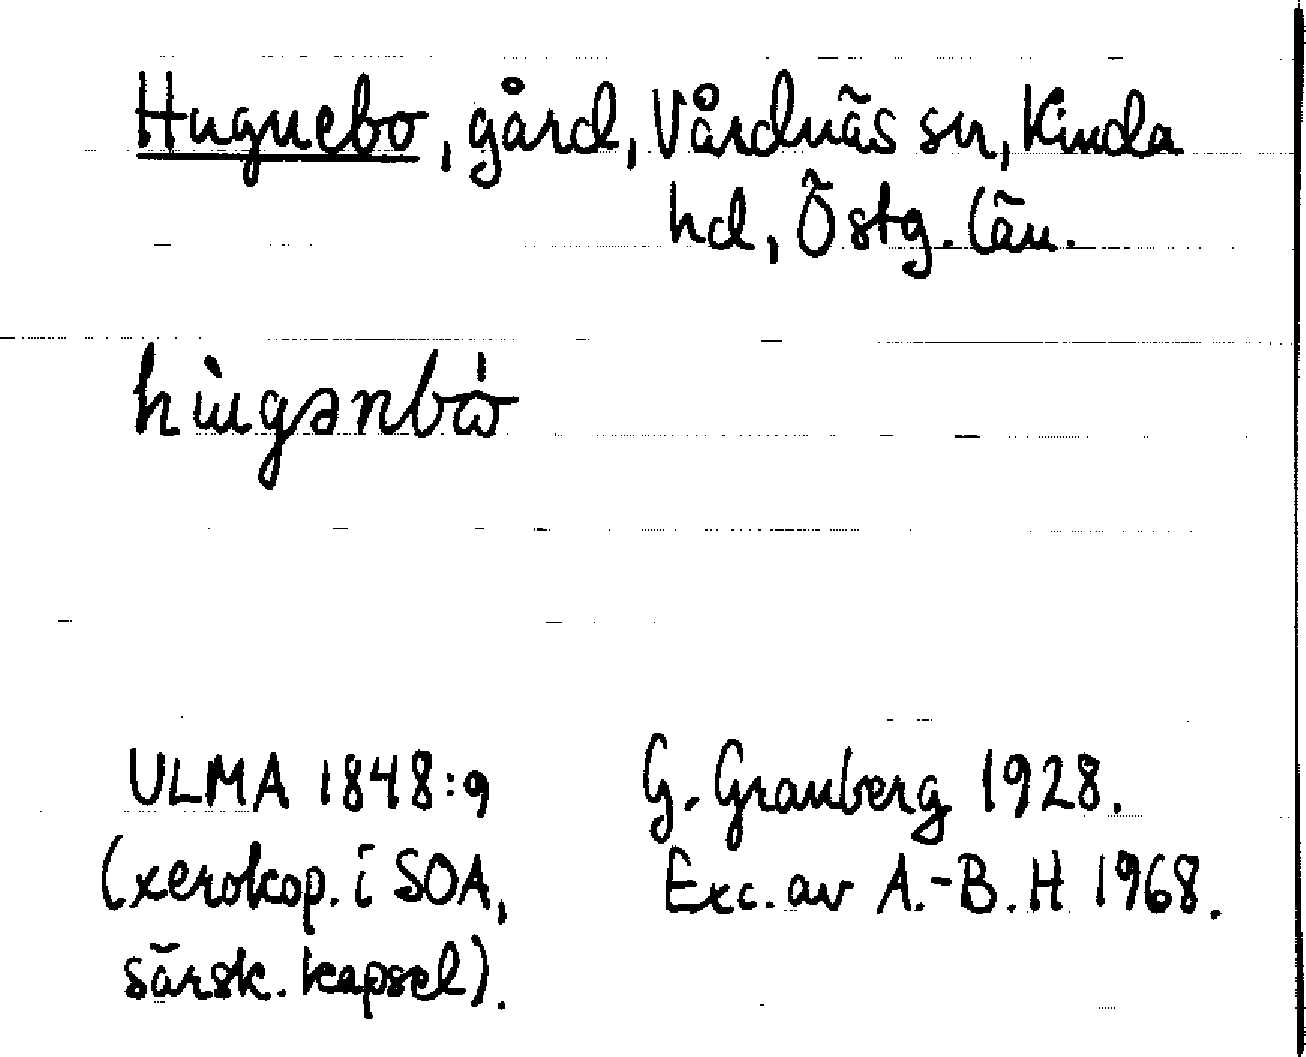 Hugnebo, gård, Vårdnäs sn, Kinda
hd, Östg. län.
hùgənbὼ
ULMA 1848:9 G. Granberg 1928.
(xerokop. i SOA, Exc. av A.-B. H 1968.
särsk. kapsel).